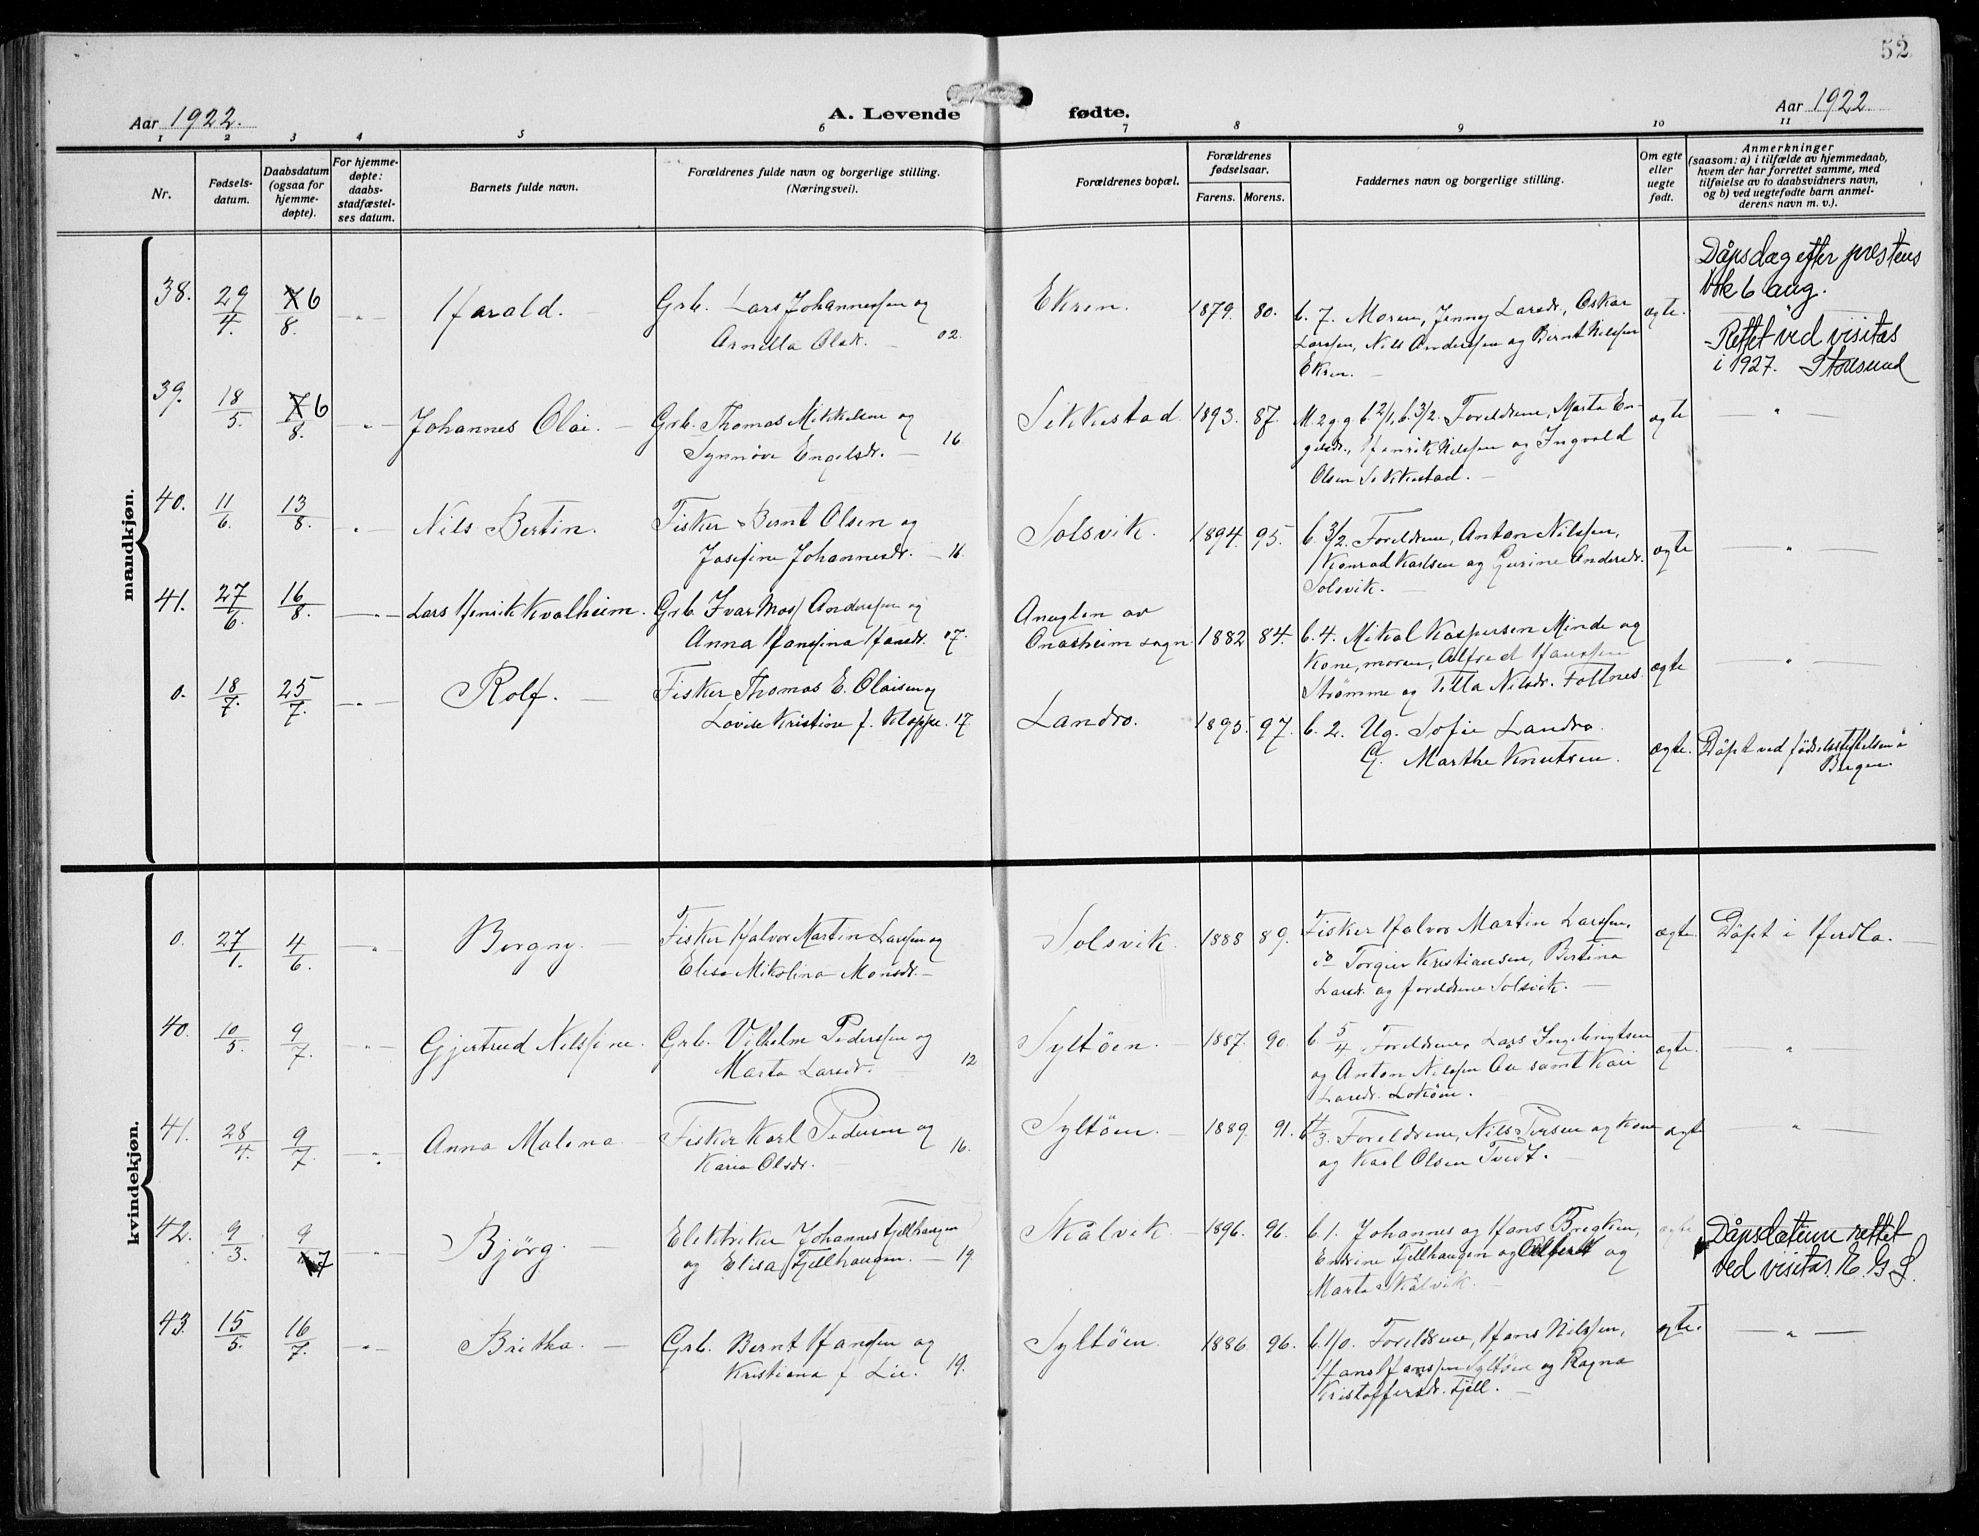 52
Aar 1922.
A. Levende fødte.
Aar 1922
1 2 3 4 5 6 7 8 9 10 11
Nr.
Fødsels-
datum.
Daabsdatum
(ogsaa for
hjemme-
døpte).
For hjemme-
døpte:
daabs-
stadfæstel-
ses datum.
Barnets fulde navn.
Forældrenes fulde navn og borgerlige stilling.
(Næringsvei).
Forældrenes bopæl.
Forældrenes
fødselsaar.
Farens. Morens.
Faddernes navn og borgerlige stilling.
Om egte
eller
uegte
født.
Anmerkninger
(saasom: a) i tilfælde av hjemmedaab,
hvem der har forrettet samme, med
tilføielse av to daabsvidners navn,
og b) ved uegtefødte barn anmel-
derens navn m. v.).
mandkjøn.
38. 29/4 7 6/8. -„- Harald. – Grb. Lars Johannessen og
Arnilla Olsdr. – 02.
Ekren. 1879. 80. b. 7. Moren, Jenny Larsdr, Oskar
Larssen, Nils Anderssen og Bernt Nilssen
Ekren. –
ægte.
Dåpsdag efter prestens
bok 6 aug.
- Rettet ved visitas
i 1927. Storsund
39. 18/5. 7 6/8. -„- Johannes Olai. – Grb. Thomas Mikkelsen og
Synnöve Engelsdr. – 16
Sekkestad 1893. 87. M. 2 g.g b 2/1, b. 3/2. Foreldrene, Marta En-
gelsdr., Henrik Nilssen og Ingvald
Olsen Sekkestad. –
ægte – „ –
40. 11/6. 13/8. -„- Nils Bertin. Fisker Bernt Olsen og
Josefine Johannesdr. – 16.
Solsvik. 1894. 95. b. 3/2. Foreldrene, Anton Nilssen,
Konrad Karlsen og Gurine Andersdr.
Solsvik. –
ægte – „ –
41. 27/6. 16/8. -„- Lars Henrik Kvalheim. Grb. Ivar Mos/ Anderssen og
Anna Hanssina Hansdr. 07.
Aneglen av
Onarheim sogn 1882 84. b. 4. Mikal Kaspersen Minde og
Kone, moren, Alfred Hanssen
Strømme og Tilla Nilsdr. Foltnes
ægte – „ –
0. 18/7. 25/7. -„- Rolf. – Fisker Thomas E. Olaisen og
Lovise Kristine f. Kloppe. 17.
Landro. 1895. 97. b. 2. Ug. Sofie Landro.
G. Marthe Knutsen.
ægte. Döpt ved födselsstiftelsen i
Bergen
kvindekjøn.
0. 27/1. 4/6. -„- Borgny. – Fisker Halvor Martin Larssen og
Elisa Mikolina Monsdr. –
Solsvik. 1888 89. Fisker Halvor Martin Larssen,
do Torgeir Kristiansen, Bertina
Larsdr. og foreldrene Solsvik. –
ægte. Döpt i Herdla. –
40. 10/5. 9/7. -„- Gjertrud Nilssine. Grb. Vilhelm Pederssen og
Marta Larsdr. – 12
Syltöen. – 1887. 90. b. 5/4 Foreldrene, Lars Ingebrigtsen
og Anton Nilssen Aa samt Kari
Larsdr. Lokøen. –
ægte. – „
41. 28/4. 9/7. -„- Anna Malena – Fisker Karl Pedersen og
Karia Olsdr. – 16.
Syltöen. – 1889. 91. b 4/3. Foreldrene, Nils Iversen og kone
og Karl Olsen Tvedt. –
ægte – „ –
42. 9/3. 9/7 -„- Bjørg. – Elektriker Johannes Fjellhaugen
og Elisa Fjellhaugen. – 19.
Skålvik – 1896. 96. b. 1. Johannes og Hans Bregken,
Endrine Fjellhaugen og Alfred og
Marta Skålvik. –
ægte Dåpsdatum rettet
ved visitas. E. G. S.
43. 15/5. 16/7. -„- Britha. – Grb. Bernt Hansen og
Kristiana f Lie. 19.
Syltöen. 1886. 96. b. 1/0. Foreldrene, Hans Nilssen,
Hans Hanssen Syltöen og Ragna
Kristoffersdr. Fjell. –
ægte. – „ –